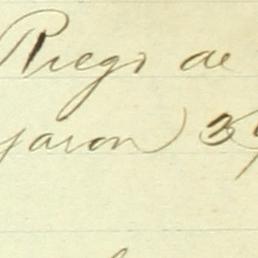 Riego de
yaron) 3